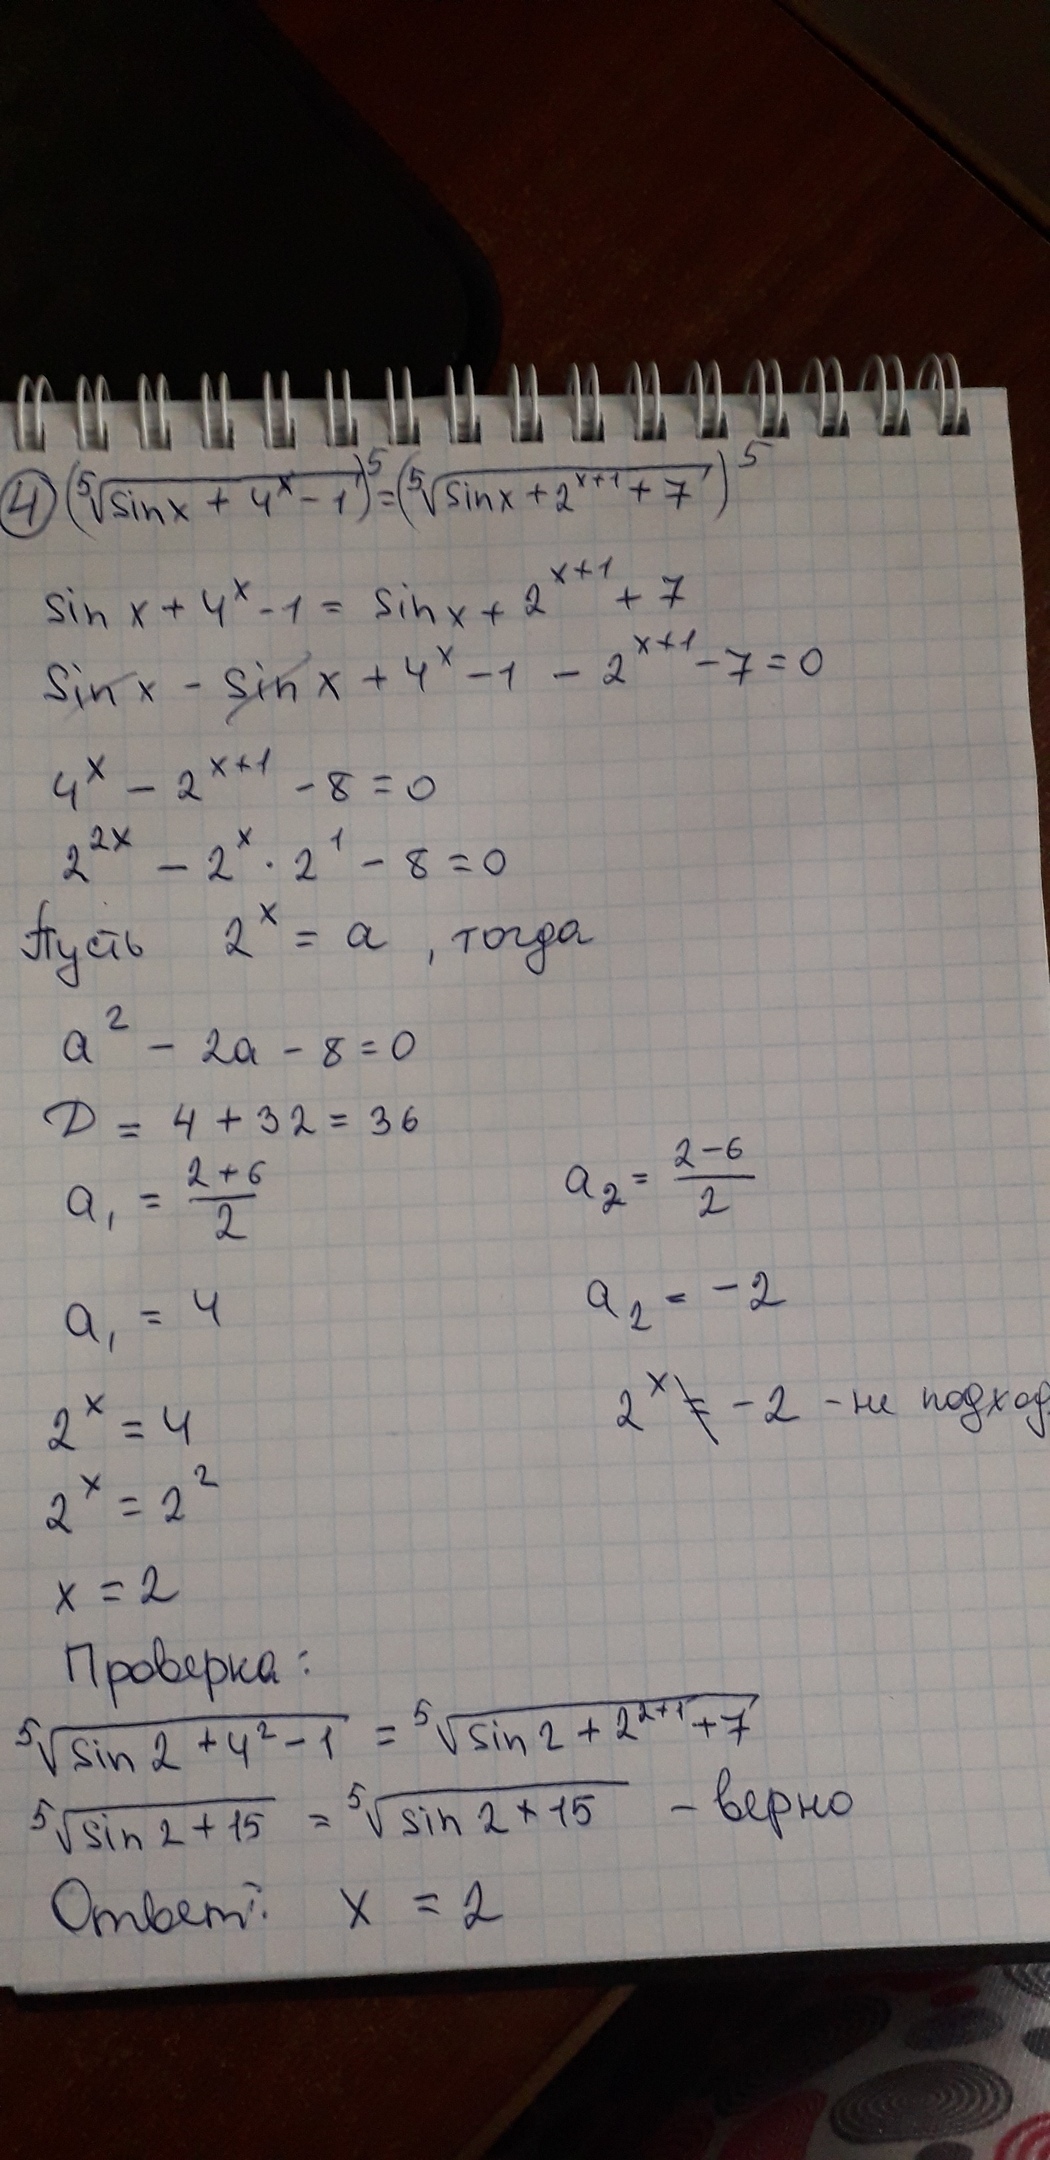 ④ (⁵√(sin x + 4ˣ - 1))⁵ = (⁵√(sin x + 2ˣ⁺¹ + 7))⁵
sin x + 4ˣ - 1 = sin x + 2ˣ⁺¹ + 7
sin x - sin x + 4ˣ - 1 - 2ˣ⁺¹ - 7 = 0
4ˣ - 2ˣ⁺¹ - 8 = 0
2²ˣ - 2ˣ · 2¹ - 8 = 0
Пусть 2ˣ = a, тогда
a² - 2a - 8 = 0
D = 4 + 32 = 36
a₁ = (2+6)/2 a₂ = (2-6)/2
a₁ = 4 a₂ = -2
2ˣ = 4 2ˣ ≠ -2 - не подход.
2ˣ = 2²
x = 2
Проверка:
⁵√(sin 2 + 4² - 1) = ⁵√(sin 2 + 2²⁺¹ + 7)
⁵√(sin 2 + 15) = ⁵√(sin 2 + 15) - верно
Ответ: x = 2